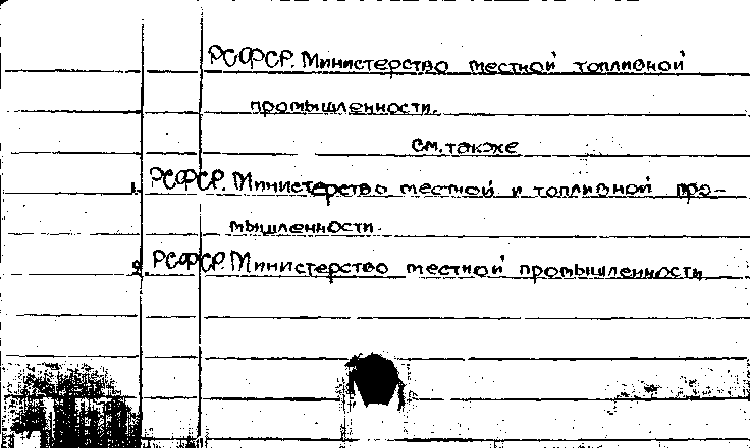 РСФСР. Министерство местной топливной
промышленности.
см. также
1. РСФСР. Министерство местной и топливной про-
мышленности.
2. РСФСР. Министерство местной промышленности